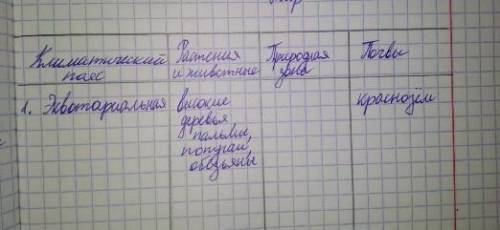 Климатический пояс
Растения и животные
Природная зона
Почвы
1. Экваториальная
высокие
деревья
пальмы,
попугаи,
обезьяны
краснозём